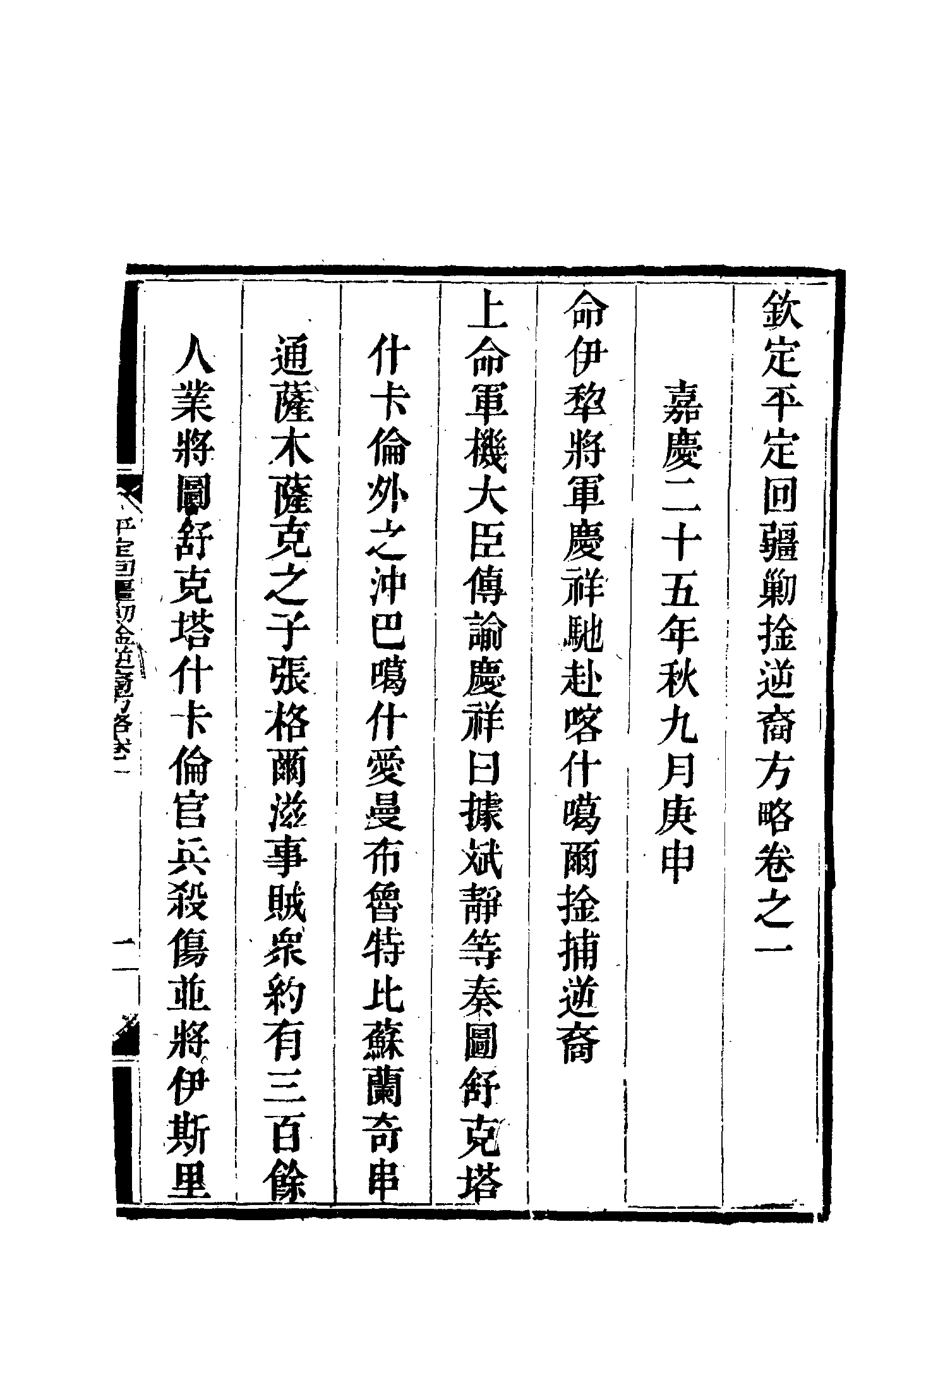 欽定平定回疆勦捦逆裔方略卷之一
嘉慶二十五年秋九月庚申
命伊犂將軍慶祥馳赴喀什噶爾捦捕逆裔
上命軍機大臣傳諭慶祥曰據斌靜等奏圖舒克塔
什卡倫外之沖巴噶什愛曼布魯特比蘇蘭奇串
通薩木薩克之子張格爾滋事賊衆約有三百餘
人業將圖舒克塔什卡倫官兵殺傷並將伊斯里
平定回疆勦捦逆裔方略卷一
一